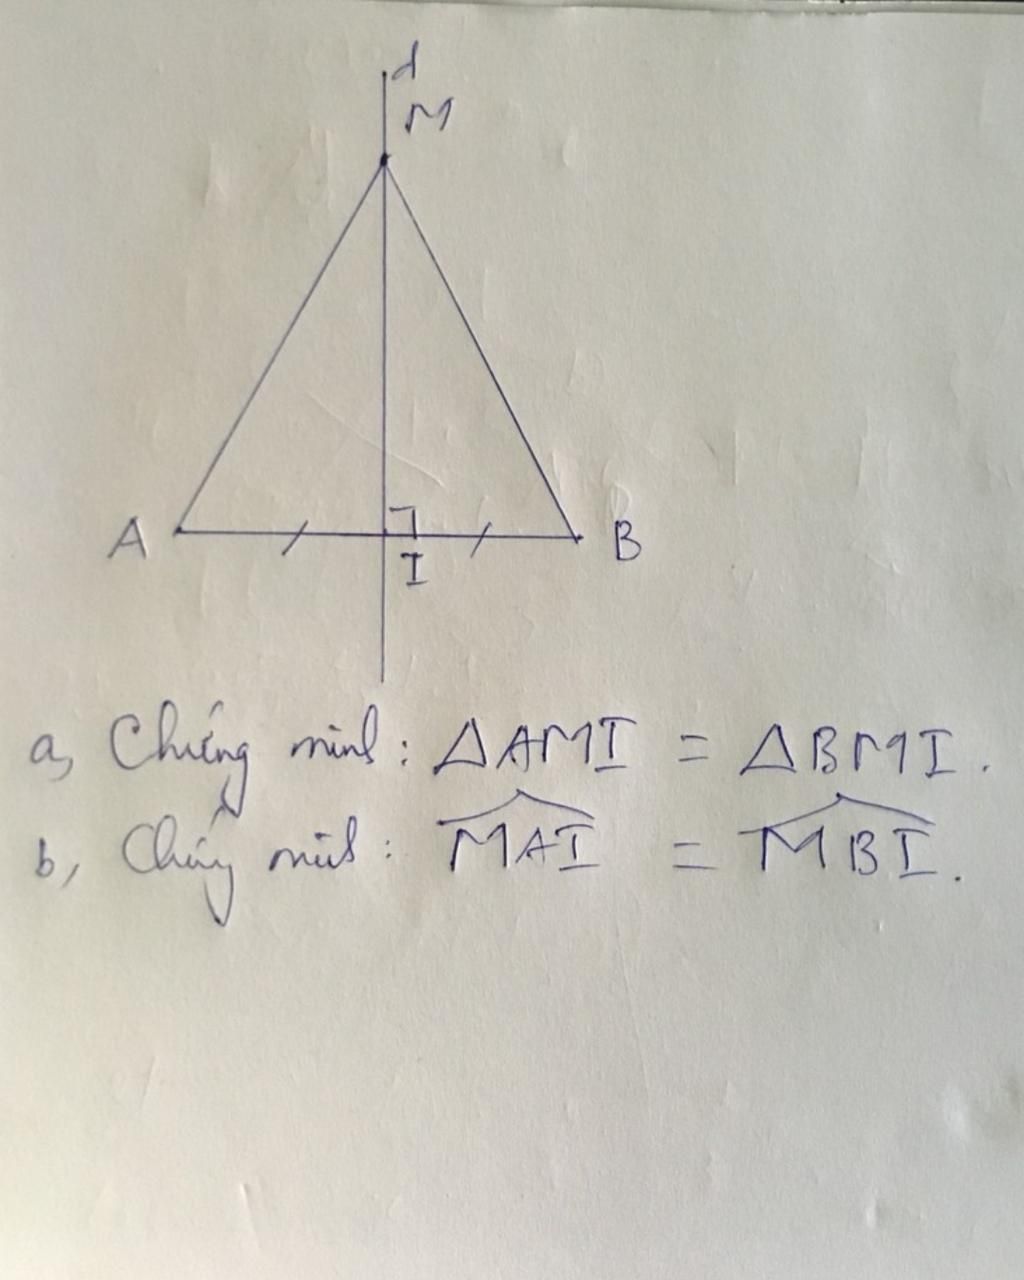 d
M
A
B
I
a, Chứng minh: ΔAMI = ΔBMI.
b, Chứng minh: \widehat{MAI} = \widehat{MBI}.